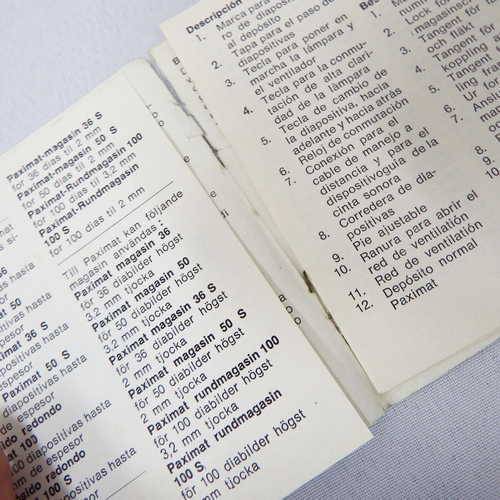 Paximat-magasin 36 S
för 36 dias til 2 mm
Paximat-magasin 50 S
för 50 dias til 2 mm
Paximat-Rundmagasin 100
for 100 dias til 3,2 mm
Paximat-Rundmagasin
100 S
for 100 dias til 2 mm
Till Paximat kan följande
magasin användas:
Paximat magasin 36
för 36 diabilder högst
3,2 mm tjocka
Paximat magasin 50
för 50 diabilder högst
3,2 mm tjocka
Paximat magasin 36 S
för 36 diabilder högst
2 mm tjocka
Paximat magasin 50 S
för 50 diabilder högst
2 mm tjocka
Paximat rundmagasin 100
för 100 diabilder högst
3,2 mm tjocka
Paximat rundmagasin
100 S
för 100 diabilder högst
2 mm tjocka
hasta
50
positivas hasta
espesor
36 S
positivas hasta
50 S
positivas hasta
de espesor
redondo
diapositivas hasta
de espesor
redondo
diapositivas hasta
mm de espesor
Descripción
1. Marca para
ro de diapositivas
al depósito
2. Tapa para el paso de
3. Tecla para poner en
marcha la lámpara y
el ventilador
4. Tecla para la conmu-
tación de alta clari-
dad de la lámpara
5. Tecla de cambio de
la diapositiva, hacia
adelante y hacia atrás
6. Reloj de conmutación
7. Conexión para el
cable de manejo a
distancia y para el
dispositivo guía de la
cinta sonora
8. Corredera de dia-
positivas
9. Pie ajustable
10. Ranura para abrir el
red de ventilatión
11. Red de ventilatión
12. Depósito normal
Paximat
1.
2. Lock för
magasinsch
3. Tangent för
och fläkt
4. Tangent för
koppling
5. Tangent för
ling fram
6. Ur för
7.
8.
9.
10.